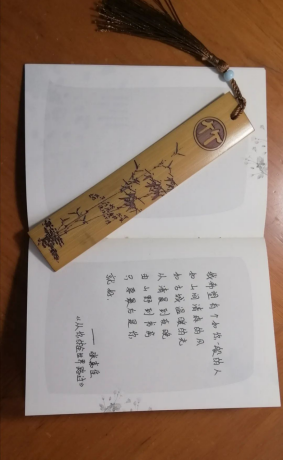 竹
我希望有个如你一般的人
如山间清爽的风
如古城温暖的光
从清晨到夜晚
由山野到书房
只要最后是你
就好
——张嘉佳
《从你的全世界路过》